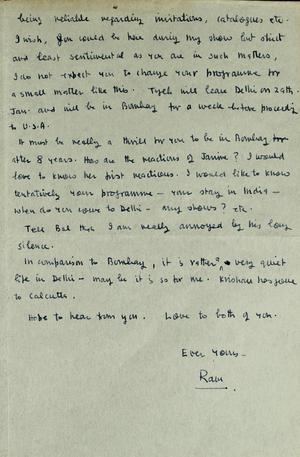 being reliable regarding invitations, catalogues etc.
I wish, you could be here during my show but strict
and least sentimental as you are in such matters,
I do not expect you to change your programme for
a small matter like this. Tyeb will leave Delhi on 29th.
Jan. and will be in Bombay for a week before proceeding
to U.S.A.
It must be really a thrill for you to be in Bombay
after 8 years. How are the reactions of Janine? I would
love to know her first reactions. I would like to know
tentatively your programme – your stay in India –
when do you come to Delhi – any shows? etc.
Tell Bal that I am really annoyed by his long
silence.
In comparison to Bombay, it is rather a very quiet
life in Delhi – may be it is so for me. Krishan has gone
to Calcutta.
Hope to hear from you. Love to both of you.
Ever yours –
Ram